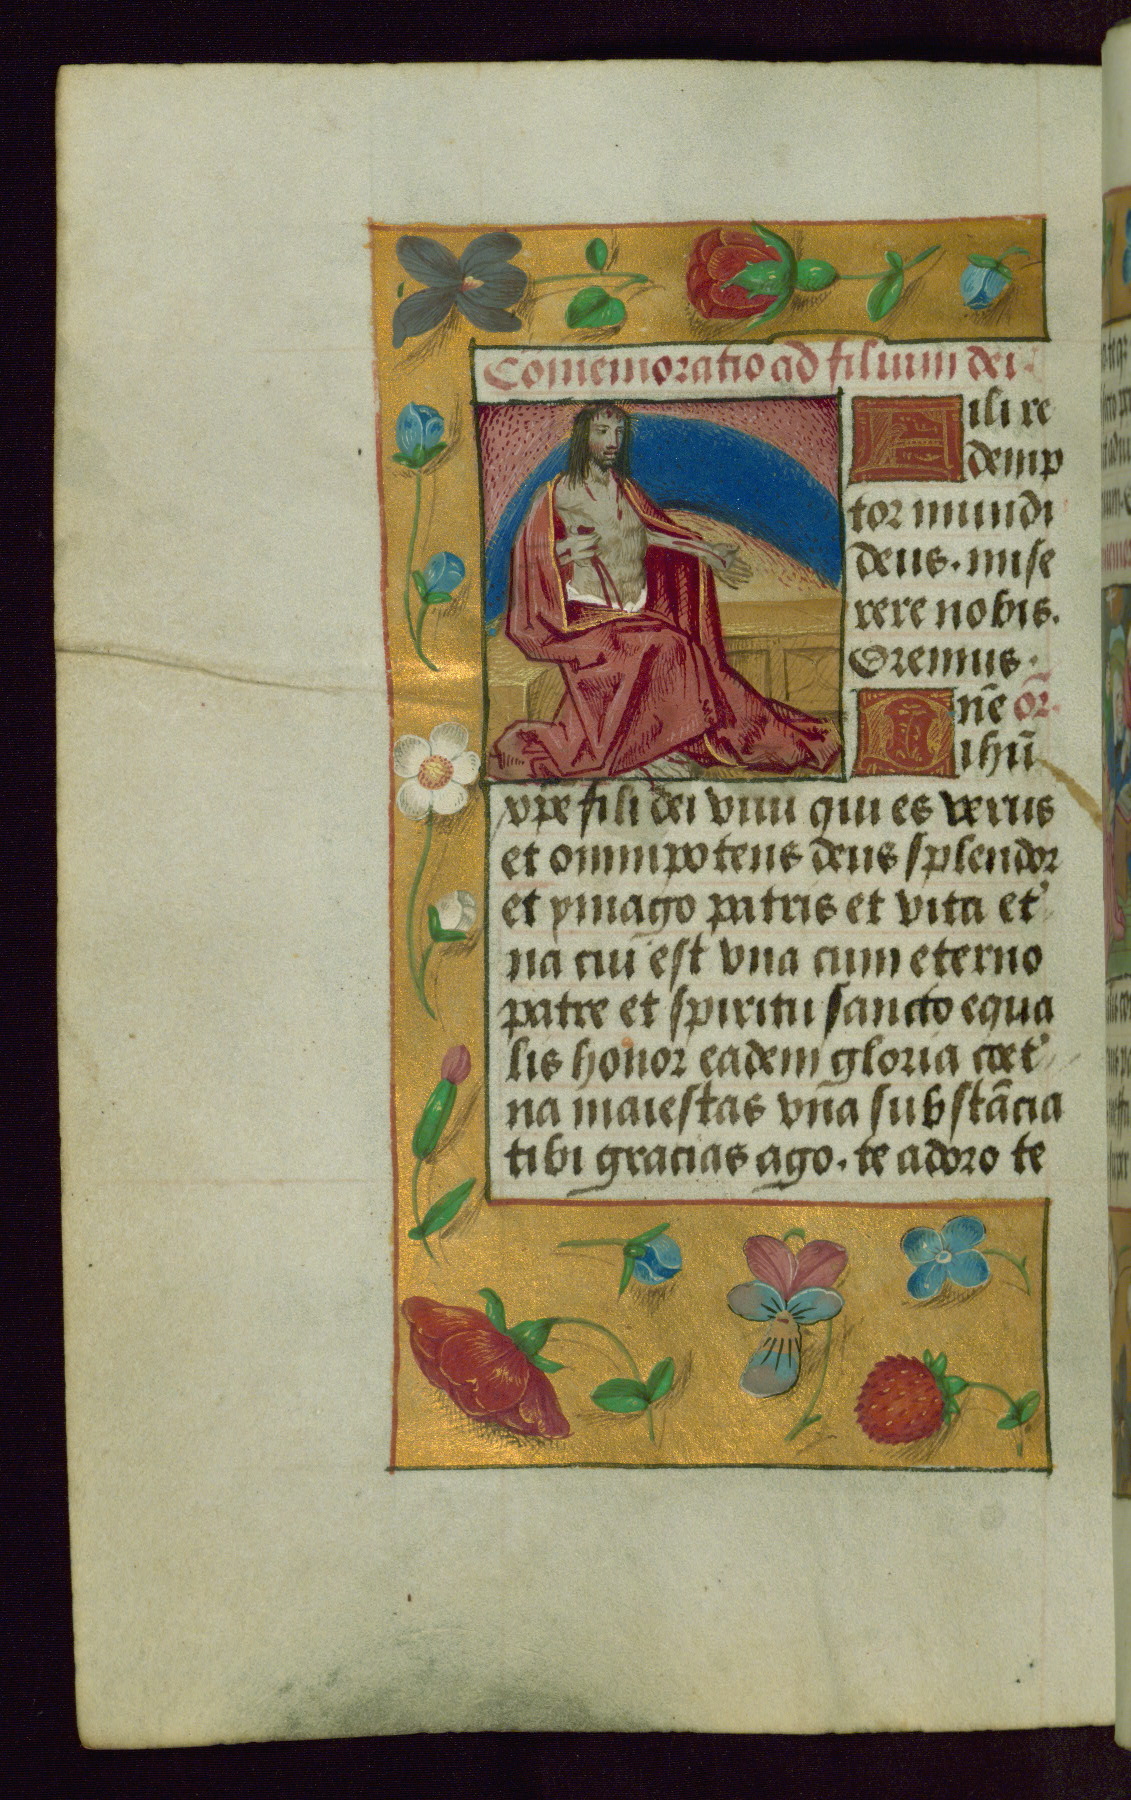 Comemoratio ad filium dei.
Fili re
demp
tor mundi
deus. mise
rere nobis.
Oremus.
Dn̄e or̄.
ihū
xp̄e fili dei viui qui es verus
et omnipotens deus splendor
et ymago patris et vita et'
na cui est vna cum eterno
patre et spiritu sancto equa
lis honor eadem gloria coet'
na maiestas vn̄a substācia
tibi gracias ago. te adoro te